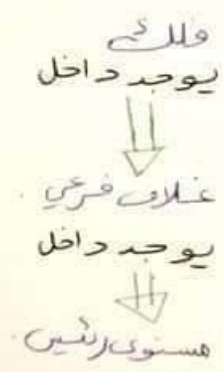 فلك
يوجد داخل
غلاف فرعي.
يوجد داخل
مستوى رئيسي.